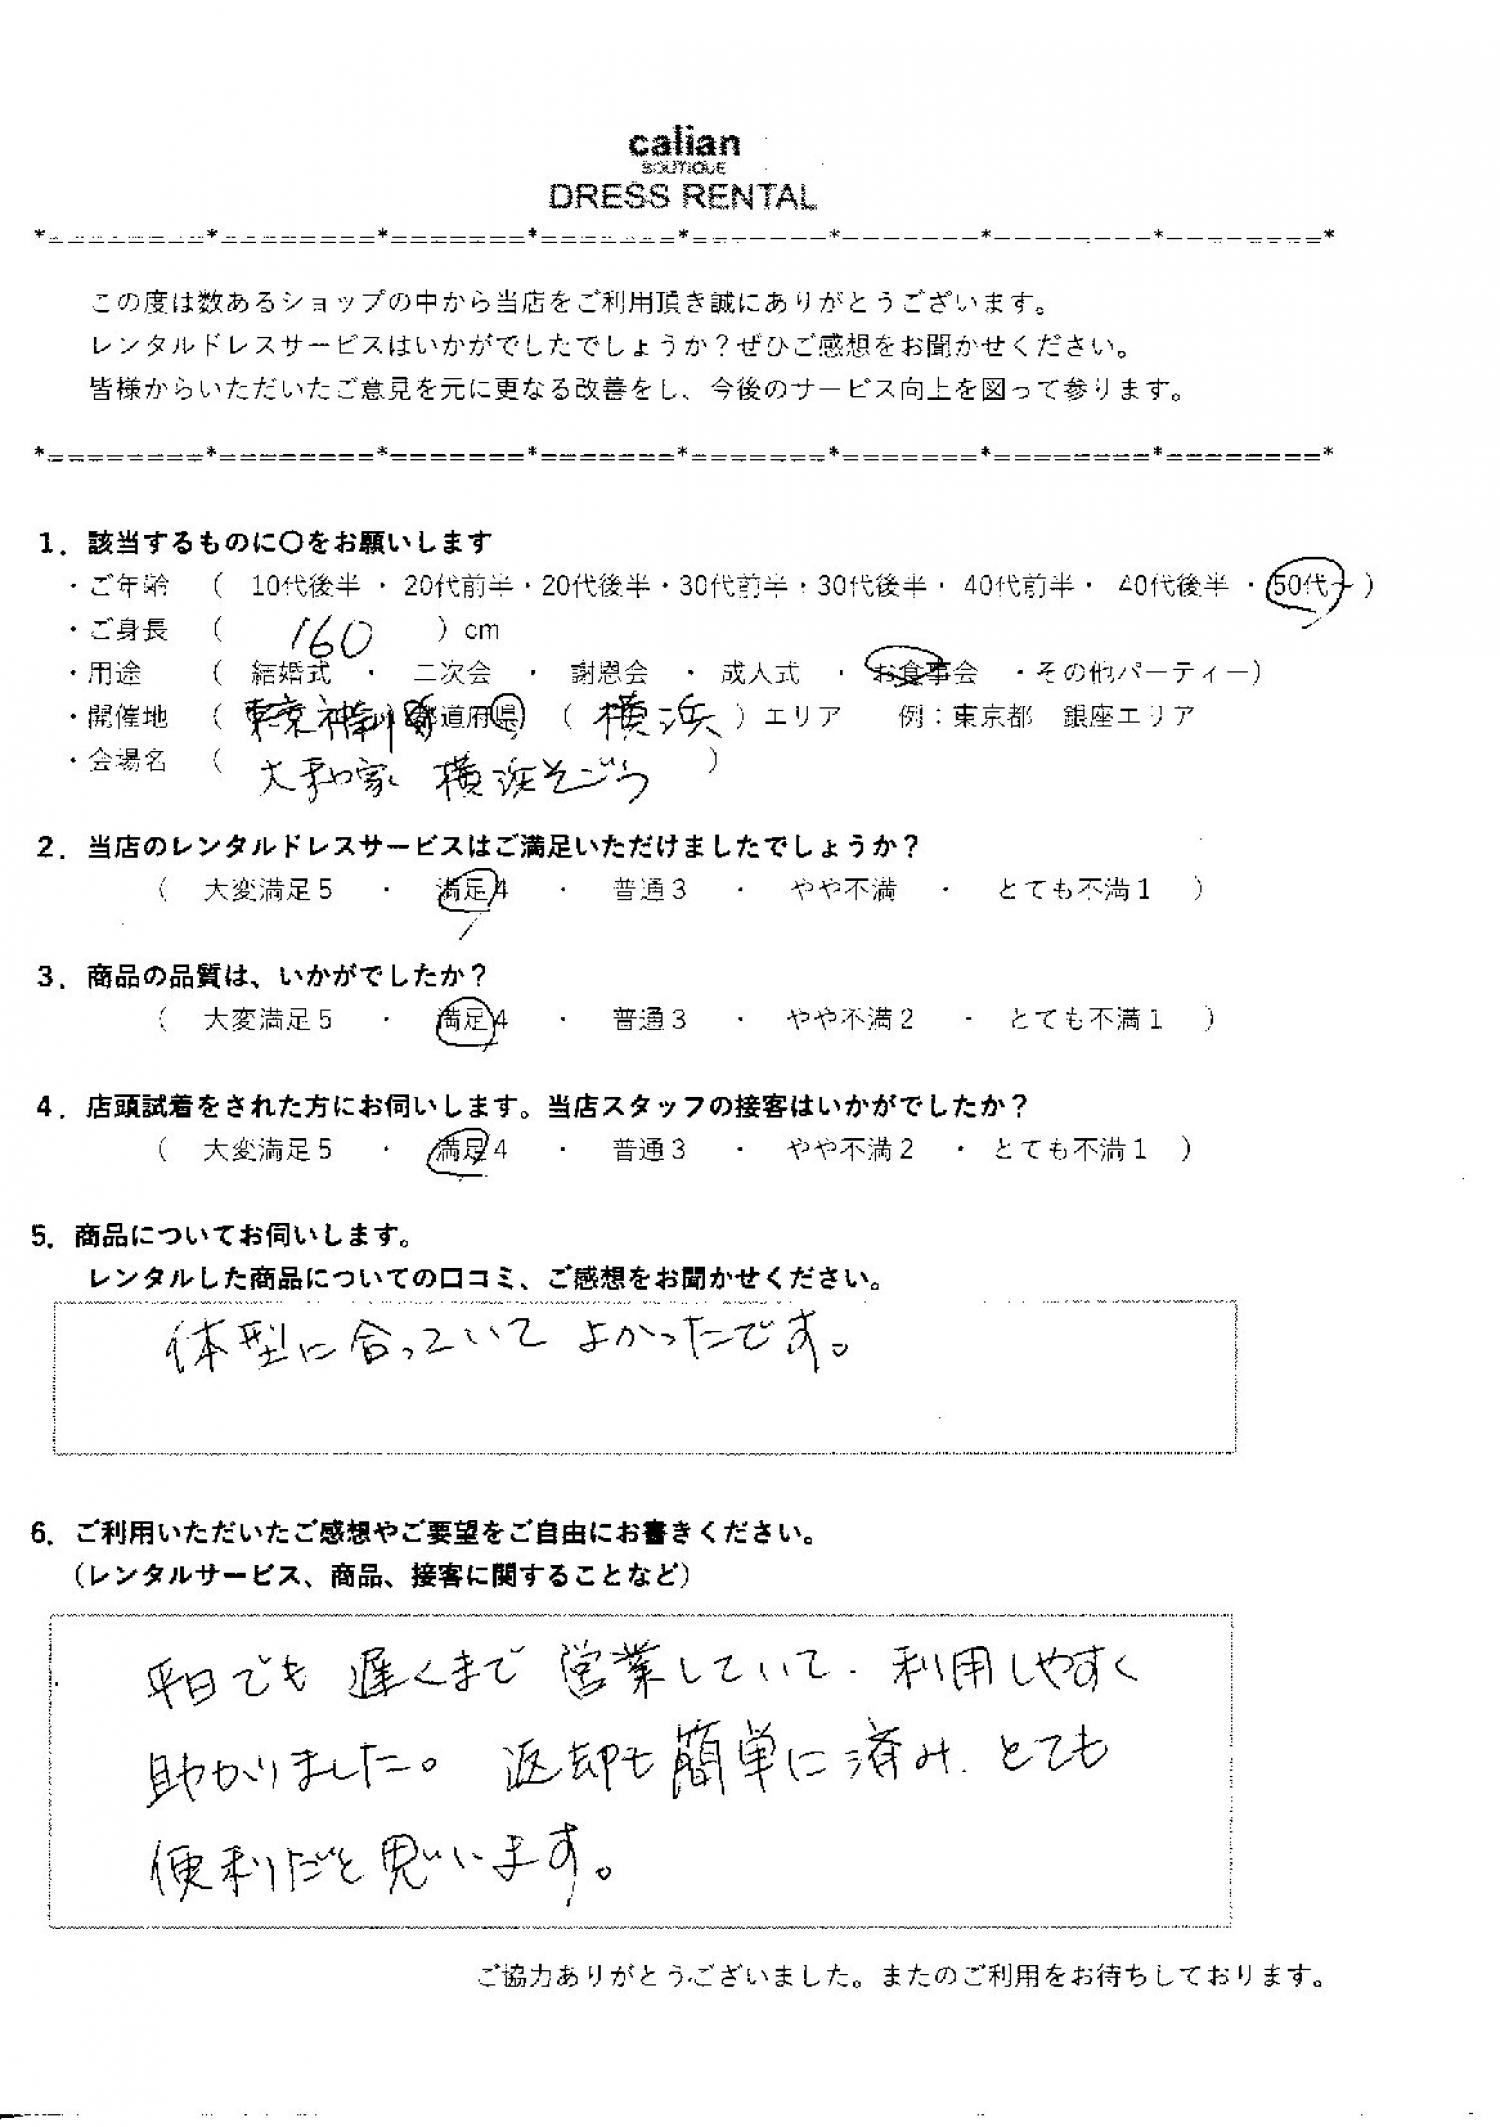 calian
BOUTIQUE
DRESS RENTAL
*========*========*=======*=======*=======*=======*========*========*
この度は数あるショップの中から当店をご利用頂き誠にありがとうございます。
レンタルドレスサービスはいかがでしたでしょうか？ぜひご感想をお聞かせください。
皆様からいただいたご意見を元に更なる改善をし、今後のサービス向上を図って参ります。
*========*========*=======*=======*=======*=======*========*========*
1．該当するものに〇をお願いします
・ご年齢 （ 10代後半 ・ 20代前半・20代後半・30代前半・30代後半・ 40代前半・ 40代後半 ・ 50代～ ）
・ご身長 （ 160 ）cm
・用途 （ 結婚式 ・ 二次会 ・ 謝恩会 ・ 成人式 ・ お食事会 ・その他パーティー）
・開催地 （ 神奈川 都道府県 （ 横浜 ）エリア 例：東京都 銀座エリア
・会場名 （ 大和家 横浜そごう ）
2．当店のレンタルドレスサービスはご満足いただけましたでしょうか？
（ 大変満足５ ・ 満足４ ・ 普通３ ・ やや不満 ・ とても不満１ ）
3．商品の品質は、いかがでしたか？
（ 大変満足５ ・ 満足４ ・ 普通３ ・ やや不満２ ・ とても不満１ ）
4．店頭試着をされた方にお伺いします。当店スタッフの接客はいかがでしたか？
（ 大変満足５ ・ 満足４ ・ 普通３ ・ やや不満２ ・ とても不満１ ）
5．商品についてお伺いします。
レンタルした商品についての口コミ、ご感想をお聞かせください。
体型に合っていて よかったです。
6．ご利用いただいたご感想やご要望をご自由にお書きください。
（レンタルサービス、商品、接客に関することなど）
平日でも 遅くまで 営業していて、利用しやすく
助かりました。返却も簡単に済み、とても
便利だと思います。
ご協力ありがとうございました。またのご利用をお待ちしております。